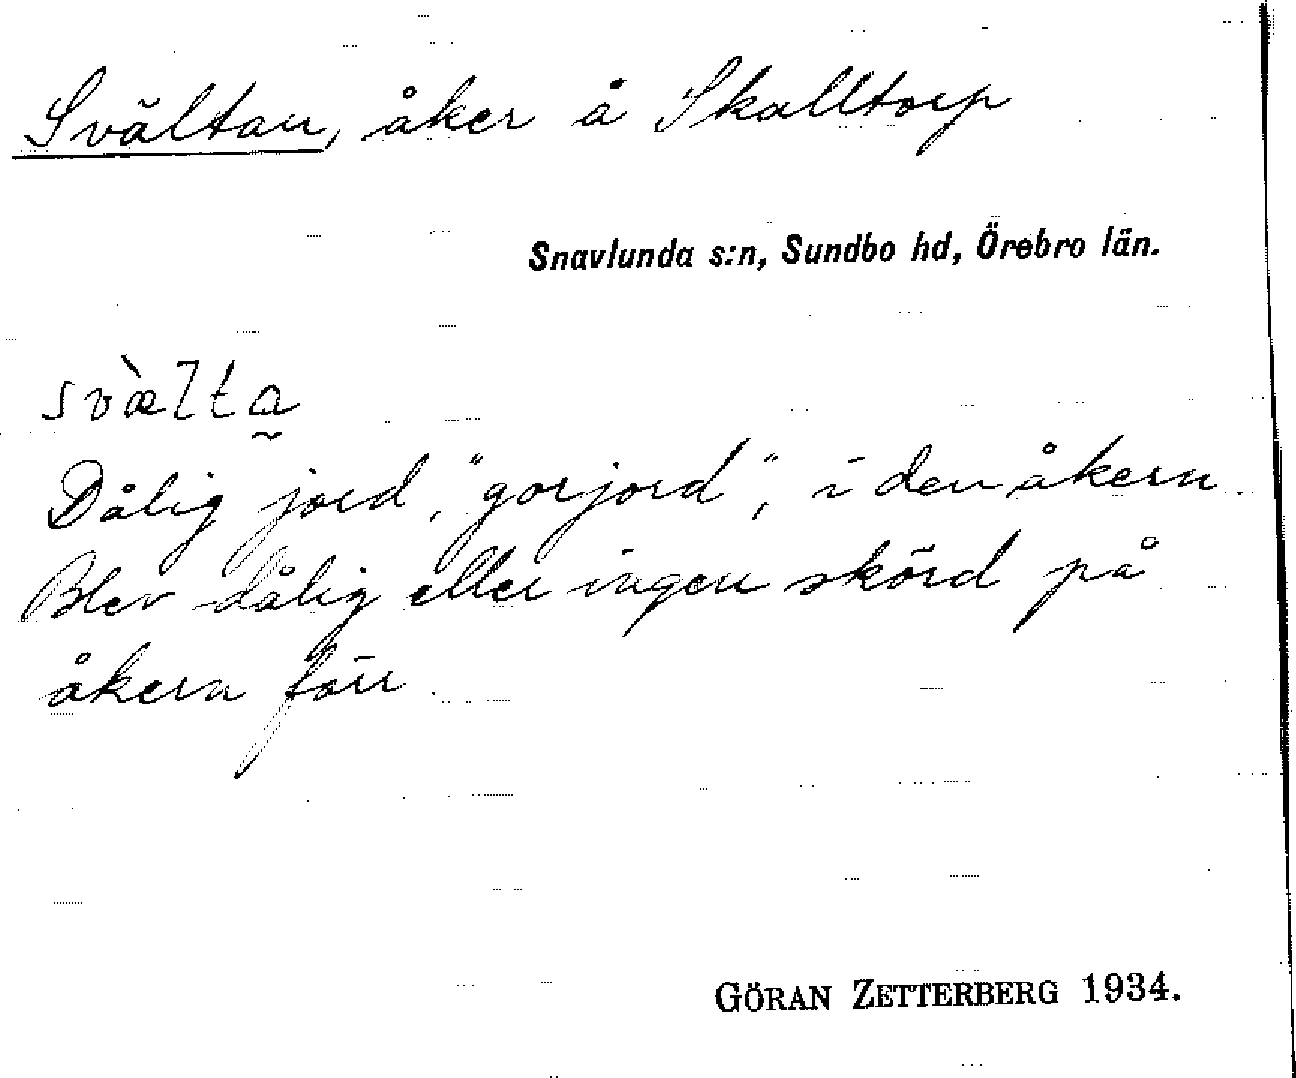 Svältan, åker å Skalltorp
Snavlunda s:n, Sundbo hd, Örebro län.
svæ̀lta̰
Dålig jord, "gorjord", i den åkern.
Blev dålig eller ingen skörd på
åkern förr.
GÖRAN ZETTERBERG 1934.